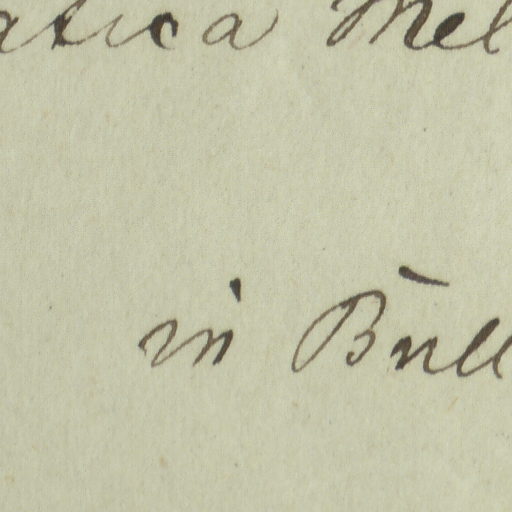 atica Mel
in Bull